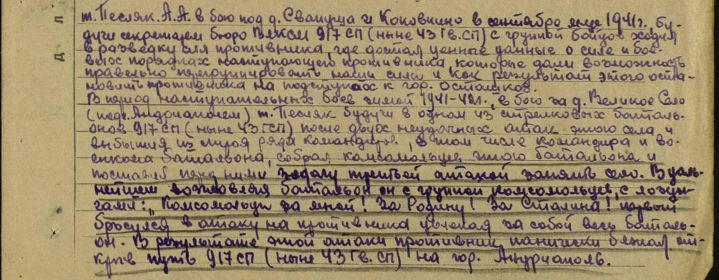 т. Песляк. А.А. в бою под д. Свапуща и Коковкино в сентябре м-це 1941г. бу-
дучи секретарем бюро ВЛКСМ 917 СП (ныне 43 Гв.СП) с группой бойцов ходил
в разведку сил противника, где достал ценные данные о силе и бое-
вых порядках наступающего противника, которые дали возможность
правильно перегруппировать наши силы и как результат этого оста-
новить противника на подступах к гор. Осташков.
В период наступательных боев зимой 1941-42г., в бою за д. Великое Село
(под г. Андриаполем) т. Песляк будучи в одном из стрелковых баталь-
онов 917 СП (ныне 43 ГСП) после двух неудачных атак этого села, и
выбытия из строя ряда командиров, в том числе командира и во-
енкома батальона, собрал комсомольцев этого батальона и
поставил перед ними задачу третьей атакой занять село. В даль-
нейшем возглавляя батальон он с группой комсомольцев, с лозун-
гами: "Комсомольцы за мной! За Родину! За Сталина! первый
бросился в атаку на противника увлекая за собой весь баталь-
он. В результате этой атаки противник панически бежал от-
крыв путь 917 СП (ныне 43 Гв.СП) на гор. Андриаполь.
Д
Л